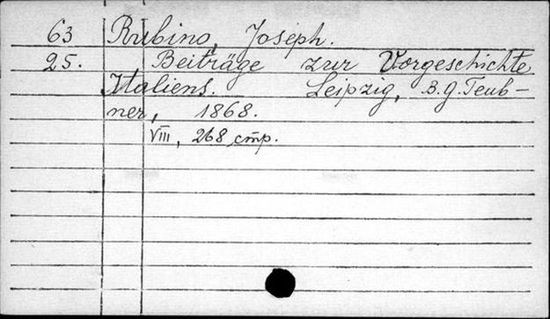 63 Rubino, Joseph.
25. Beiträge zur Vorgeschichte
Italiens. Leipzig, B.G. Teub-
ner, 1868.
VIII, 268 стр.